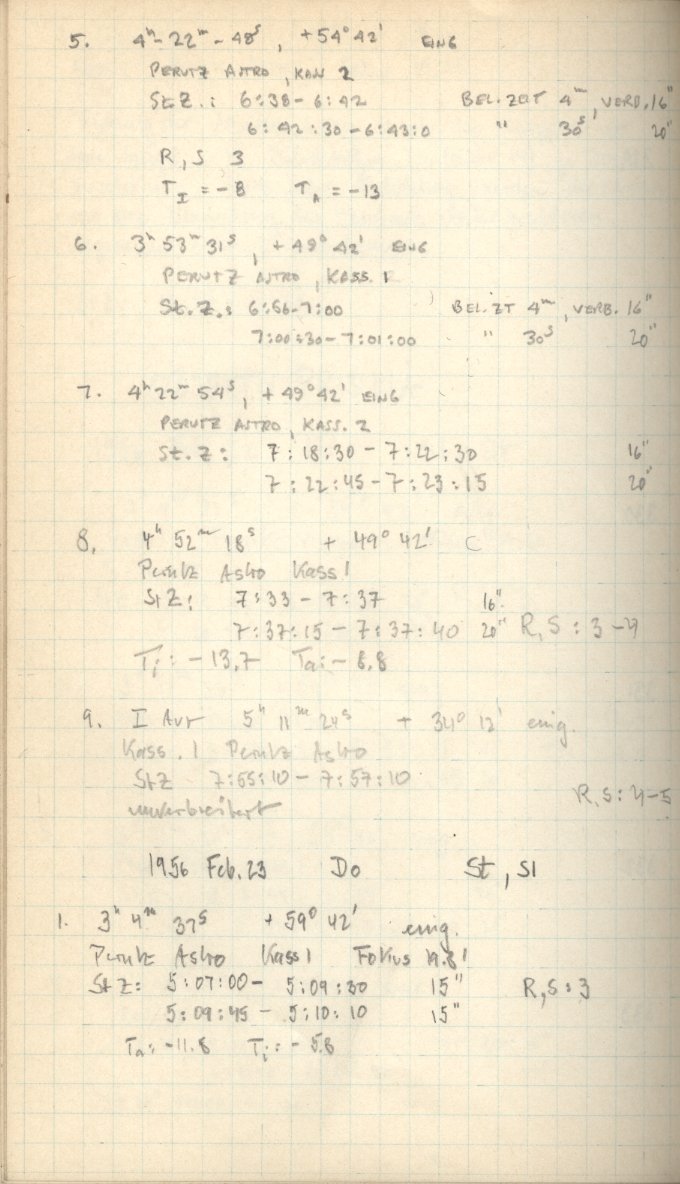 5. 4ʰ-22ᵐ-48ˢ, +54°42' EING
PERUTZ ASTRO, KASS 2
St.Z.: 6:38-6:42 BEL.ZEIT 4ᵐ, VERB. 16"
6:42:30-6:43:0 " 30ˢ 20"
R,S 3
T_I = -8 T_A = -13
6. 3ʰ53ᵐ31ˢ, +49°42' EING
PERUTZ ASTRO, KASS. 1
St.Z.: 6:56-7:00 BEL.ZT 4ᵐ, VERB. 16"
7:00:30-7:01:00 " 30ˢ 20"
7. 4ʰ22ᵐ54ˢ, +49°42' EING
PERUTZ ASTRO, KASS. 2
St.Z: 7:18:30-7:22:30 16"
7:22:45-7:23:15 20"
8. 4ʰ52ᵐ18ˢ +49°42'
Perutz Astro Kass 1
StZ: 7:33-7:37 16"
7:37:15-7:37:40 20" R,S: 3-4
Ti: -13,7 Ta: -8,8
9. I Aur 5ʰ11ᵐ24ˢ +34°12' eing.
Kass. 1 Perutz Astro
StZ 7:55:10-7:57:10
unverbreitert R,S: 4-5
1956 Feb. 23 Do St, Sl
1. 3ʰ4ᵐ37ˢ +59°42' eing.
Perutz Astro Kass 1 Fokus 19.8
StZ: 5:07:00-5:09:30 15" R,S: 3
5:09:45-5:10:10 15"
Ta: -11.8 Ti: -5.8